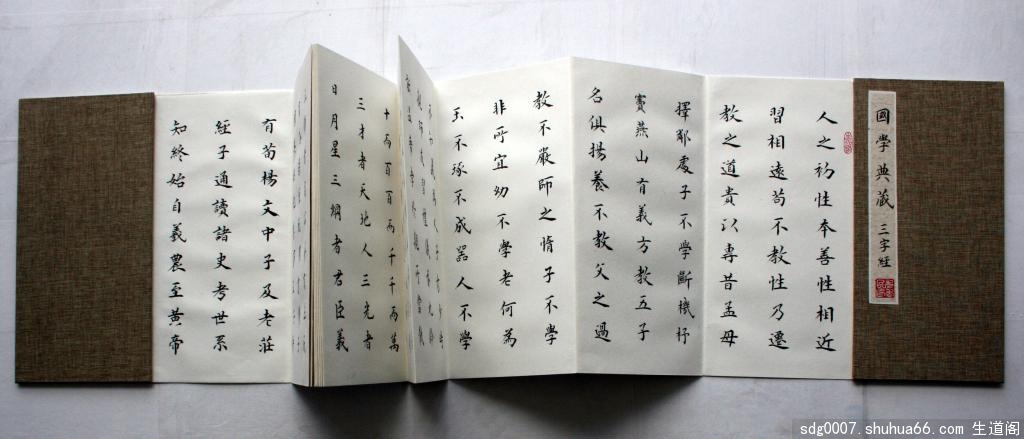 國學典藏 三字經
人之初性本善性相近
習相遠苟不教性乃遷
教之道貴以專昔孟母
擇鄰處子不學斷機杼
竇燕山有義方教五子
名俱揚養不教父之過
教不嚴師之惰子不學
非所宜幼不學老何為
玉不琢不成器人不學
十而百百而千千而萬
三才者天地人三光者
日月星三綱者君臣義
有荀楊文中子及老莊
經子通讀諸史考世系
知終始自羲農至黃帝
sdg0007.shuhua66.com 生道阁